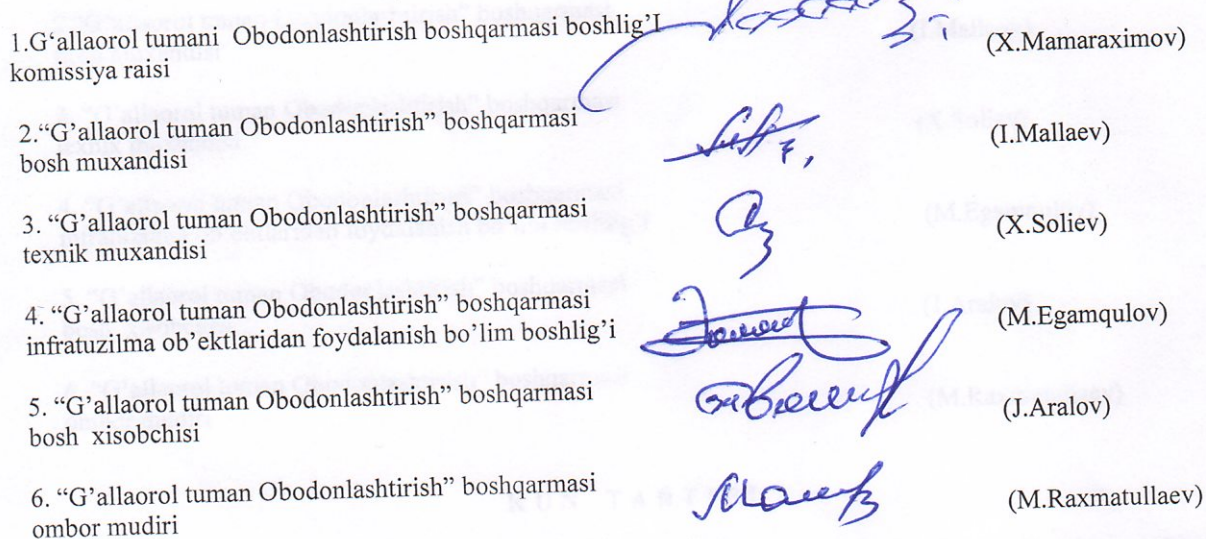 1.G‘allaorol tumani Obodonlashtirish boshqarmasi boshlig’I
komissiya raisi (X.Mamaraximov)
2.“G’allaorol tuman Obodonlashtirish” boshqarmasi
bosh muxandisi (I.Mallaev)
3. “G’allaorol tuman Obodonlashtirish” boshqarmasi
texnik muxandisi (X.Soliev)
4. “G’allaorol tuman Obodonlashtirish” boshqarmasi
infratuzilma ob’ektlaridan foydalanish bo’lim boshlig’i (M.Egamqulov)
5. “G’allaorol tuman Obodonlashtirish” boshqarmasi
bosh xisobchisi (J.Aralov)
6. “G’allaorol tuman Obodonlashtirish” boshqarmasi
ombor mudiri (M.Raxmatullaev)